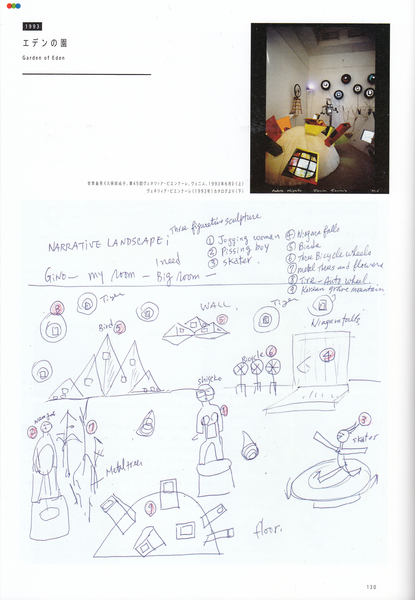 1993
エデンの園
Garden of Eden
第45回ヴェネツィア・ビエンナーレ、ヴェニス、1993年6月
ヴェネツィア・ビエンナーレ(1993年)カタログより(下)
Three figurative sculpture
NARRATIVE LANDSCAPE;
I need
① Jogging woman
② Pissing boy
③ skater
④ Niagara falls
⑤ Birds
⑥ Three Bicycle wheels
⑦ metal trees and flowers
⑧ Tire - Auto wheel
⑨ Korean grave mountain
GINO - my room - Big room -
⑧
Tiger
WALL
Tiger
Bird ⑤
⑤
Niagara falls
Bicycle ⑥
④
Shigeko
②
⑦
①
③
skator
Metal trees
⑨
floor.
130